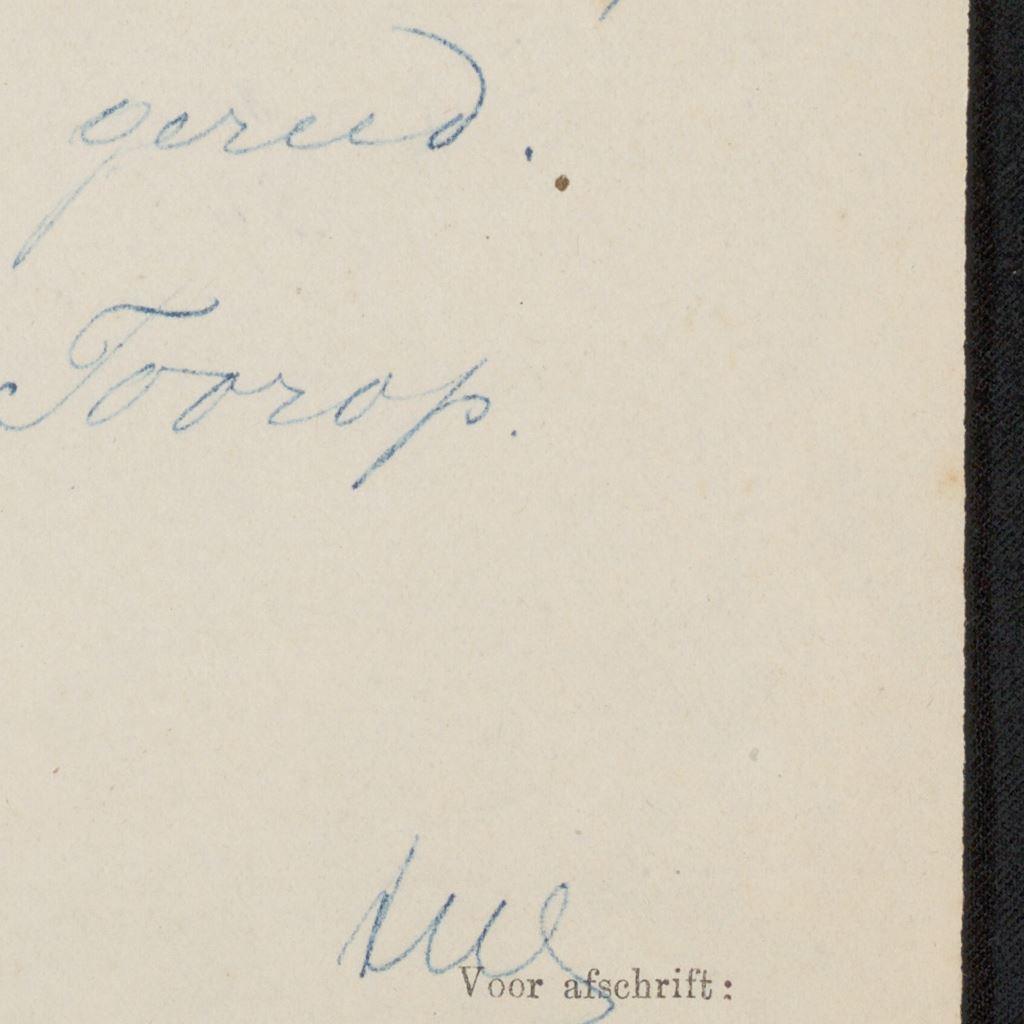 gereed.
Toorop.
Voor afschrift: